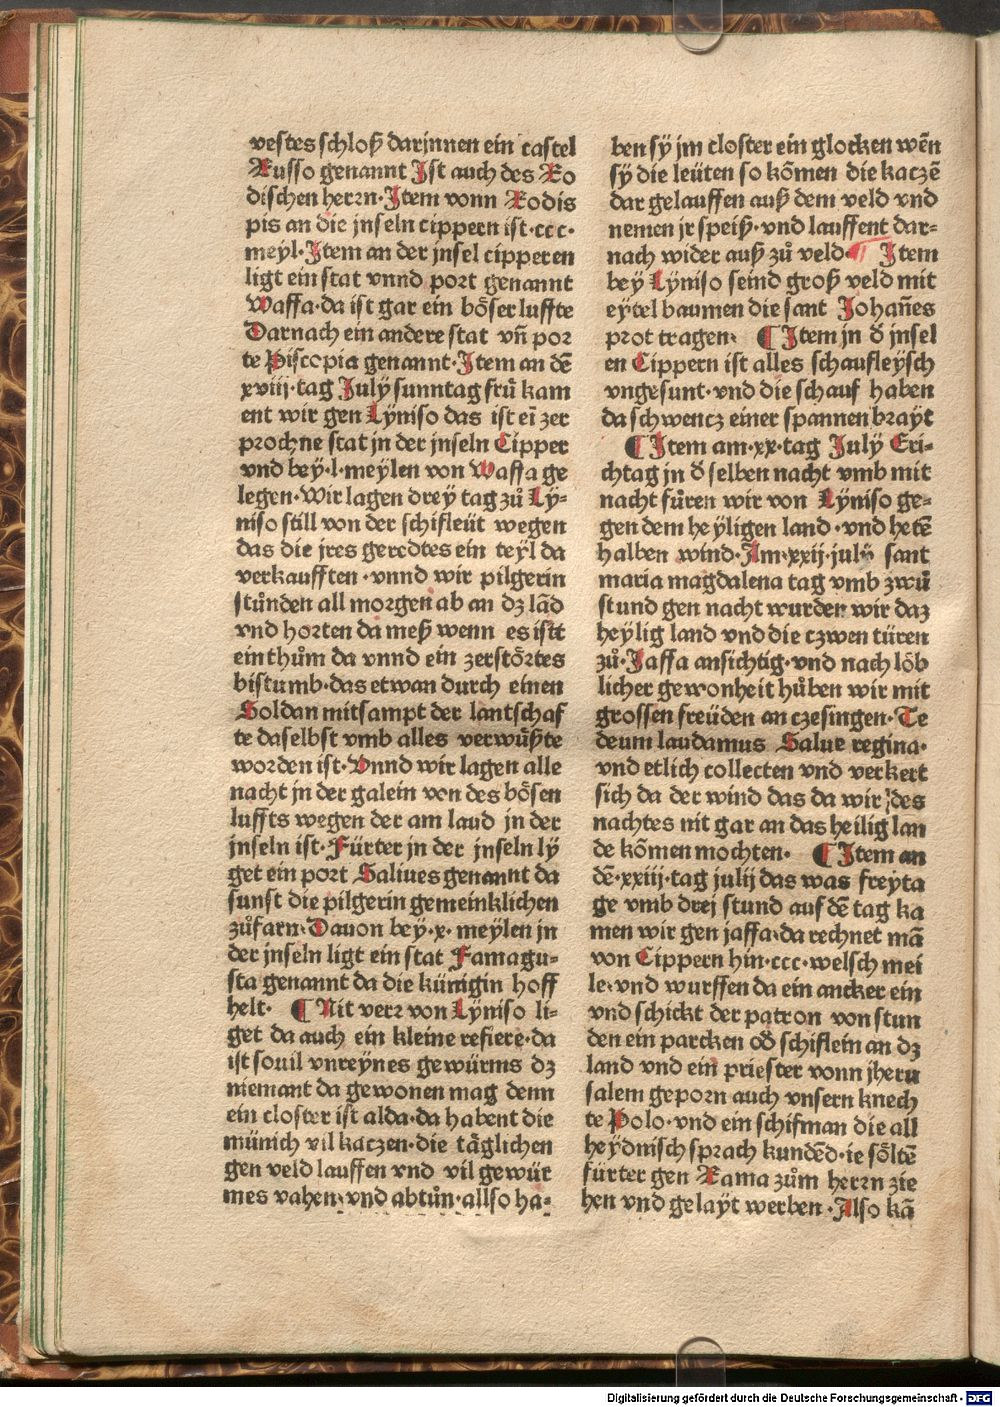 vestes schloß darjnnen ein castel
Russo genannt Jst auch des Ro
dischen herrn·Jtem vonn Rodis
pis an die jnseln cippern ist·ccc·
meyl·Jtem an der jnsel cipperen
ligt ein stat vnnd port genannt
Waffa·da ist gar ein bo᷍ser luffte
Darnach ein andere stat vn̄ por
te Piscopia genannt·Jtem an dē
xviij·tag July sunntag frů kam
ent wir gen Lÿniso das ist eī zer
prochne stat jn der jnseln Cipper
vnd bey·l·meylen von Waffa ge
legen·Wir lagen dreÿ tag zů Lÿ⸗
niso still von der schifleüt wegen
das die jres geredtes ein teyl da
verkaufften·vnnd wir pilgerin
stůnden all morgen ab an dz lād
vnd horten da meß wenn es istt
ein thům da vnnd ein zerstörtes
bistumb·das etwan durch einen
Soldan mitsampt der lantschaf
te daselbst vmb alles verwüßte
worden ist·Vnnd wir lagen alle
nacht jn der galein von des bösen
luffts wegen der am laud jn der
jnseln ist·Fürter jn der jnseln lÿ
get ein port Saliues genannt da
sunst die pilgerin gemeinklichen
zůfarn·Dauon bey·x·meylen jn
der jnseln ligt ein stat Famagu⸗
sta genannt da die künigin hoff
helt· ¶ Nit verz von Lÿniso li⸗
get da auch ein kleine refiere·da
ist souil vnreÿnes gewürms dz
niemant da gewonen mag denn
ein closter ist alda·da habent die
münich vil kaczen·die täglichen
gen veld lauffen vnd vil gewür
mes vahen·vnd abtůn·allso ha⸗
ben sÿ jm closter ein glocken wēn
sÿ die leüten so kōmen die kaczē
dar gelauffen auß dem veld vnd
nemen jr speiß·vnd lauffent dar⸗
nach wider auß zů veld·¶ Jtem
bey Lÿniso seind groß veld mit
eÿtel baumen die sant Johan̄es
prot tragen· ¶ Jtem jn d̄ jnsel
en Cippern ist alles schaufleÿsch
vngesunt·vnd die schauf haben
da schwencz einer spannen brayt
¶ Jtem am·xx·tag Julÿ Eri⸗
chtag jn d̄ selben nacht vmb mit
nacht fůren wir von Lÿniso ge⸗
gen dem heÿligen land·vnd hetē
halben wind·Am·xxij·julÿ sant
maria magdalena tag vmb zwů
stund gen nacht wurden wir daz
heÿlig land vnd die czwen türen
zů·Jaffa ansichtig·vnd nach löb
licher gewonheit hůben wir mit
grossen freüden an czesingen·Te
deum laudamus Salue regina·
vnd etlich collecten vnd verkert
sich da der wind das da wir des
nachtes nit gar an das heilig lan
de kōmen mochten· ¶ Jtem an
dē·xxiij·tag julij das was freyta
ge vmb drej stund auf dē tag ka
men wir gen jaffa·da rechnet mā
von Cippern hin·ccc·welsch mei
le·vnd wurffen da ein ancker ein
vnd schickt der patron von stun
den ein parcken od̄ schiflein an dz
land vnd ein priester vonn jheru
salem geporn auch vnsern knech
te Polo·vnd ein schifman die all
heÿdnisch sprach kundēd·ie söltē
fürter gen Rama zům herrn zie
hen vnd gelaÿt werben·Also kā
Digitalisierung gefördert durch die Deutsche Forschungsgemeinschaft - DFG